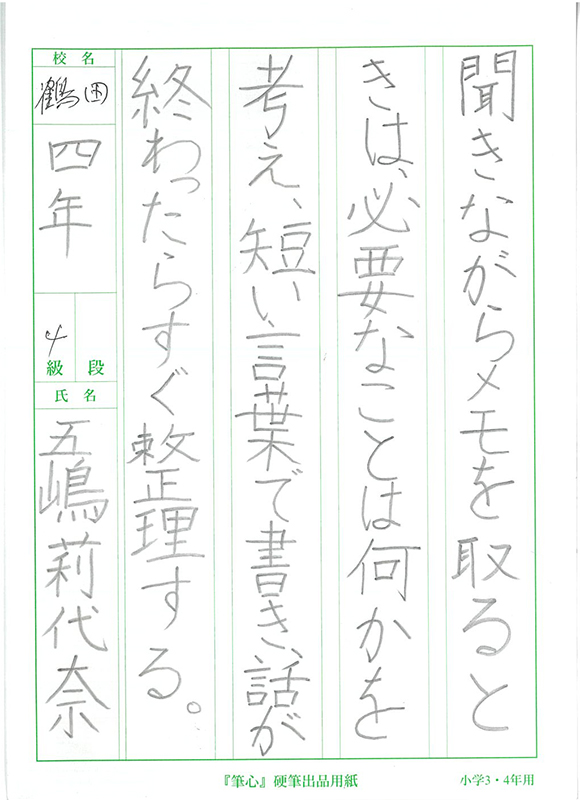 聞きながらメモを取ると
きは、必要なことは何かを
考え、短い言葉で書き、話が
終わったらすぐ整理する。
校名
鶴田
四年
4
級 段
氏名
五嶋莉代奈
『筆心』硬筆出品用紙
小学3・4年用